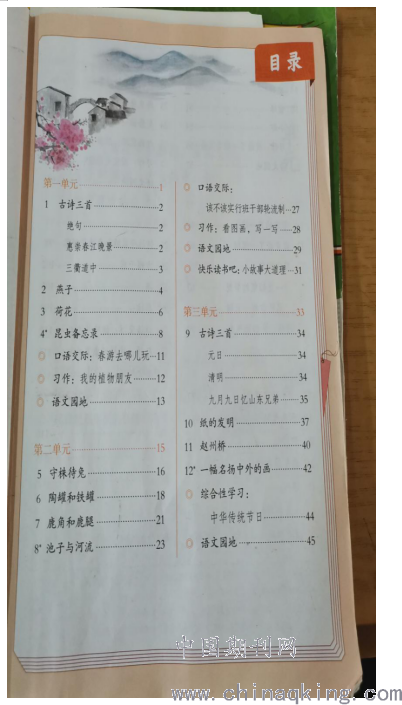 目录
第一单元 1
1 古诗三首 2
绝句 2
惠崇春江晚景 2
三衢道中 3
2 燕子 4
3 荷花 6
4* 昆虫备忘录 8
口语交际：春游去哪儿玩 11
习作：我的植物朋友 12
语文园地 13
第二单元 15
5 守株待兔 16
6 陶罐和铁罐 18
7 鹿角和鹿腿 21
8* 池子与河流 23
口语交际：
该不该实行班干部轮流制 27
习作：看图画，写一写 28
语文园地 29
快乐读书吧：小故事大道理 31
第三单元 33
9 古诗三首 34
元日 34
清明 34
九月九日忆山东兄弟 35
10 纸的发明 37
11 赵州桥 40
12* 一幅名扬中外的画 42
综合性学习：
中华传统节日 44
语文园地 45
中国期刊网
www.chinaqking.com